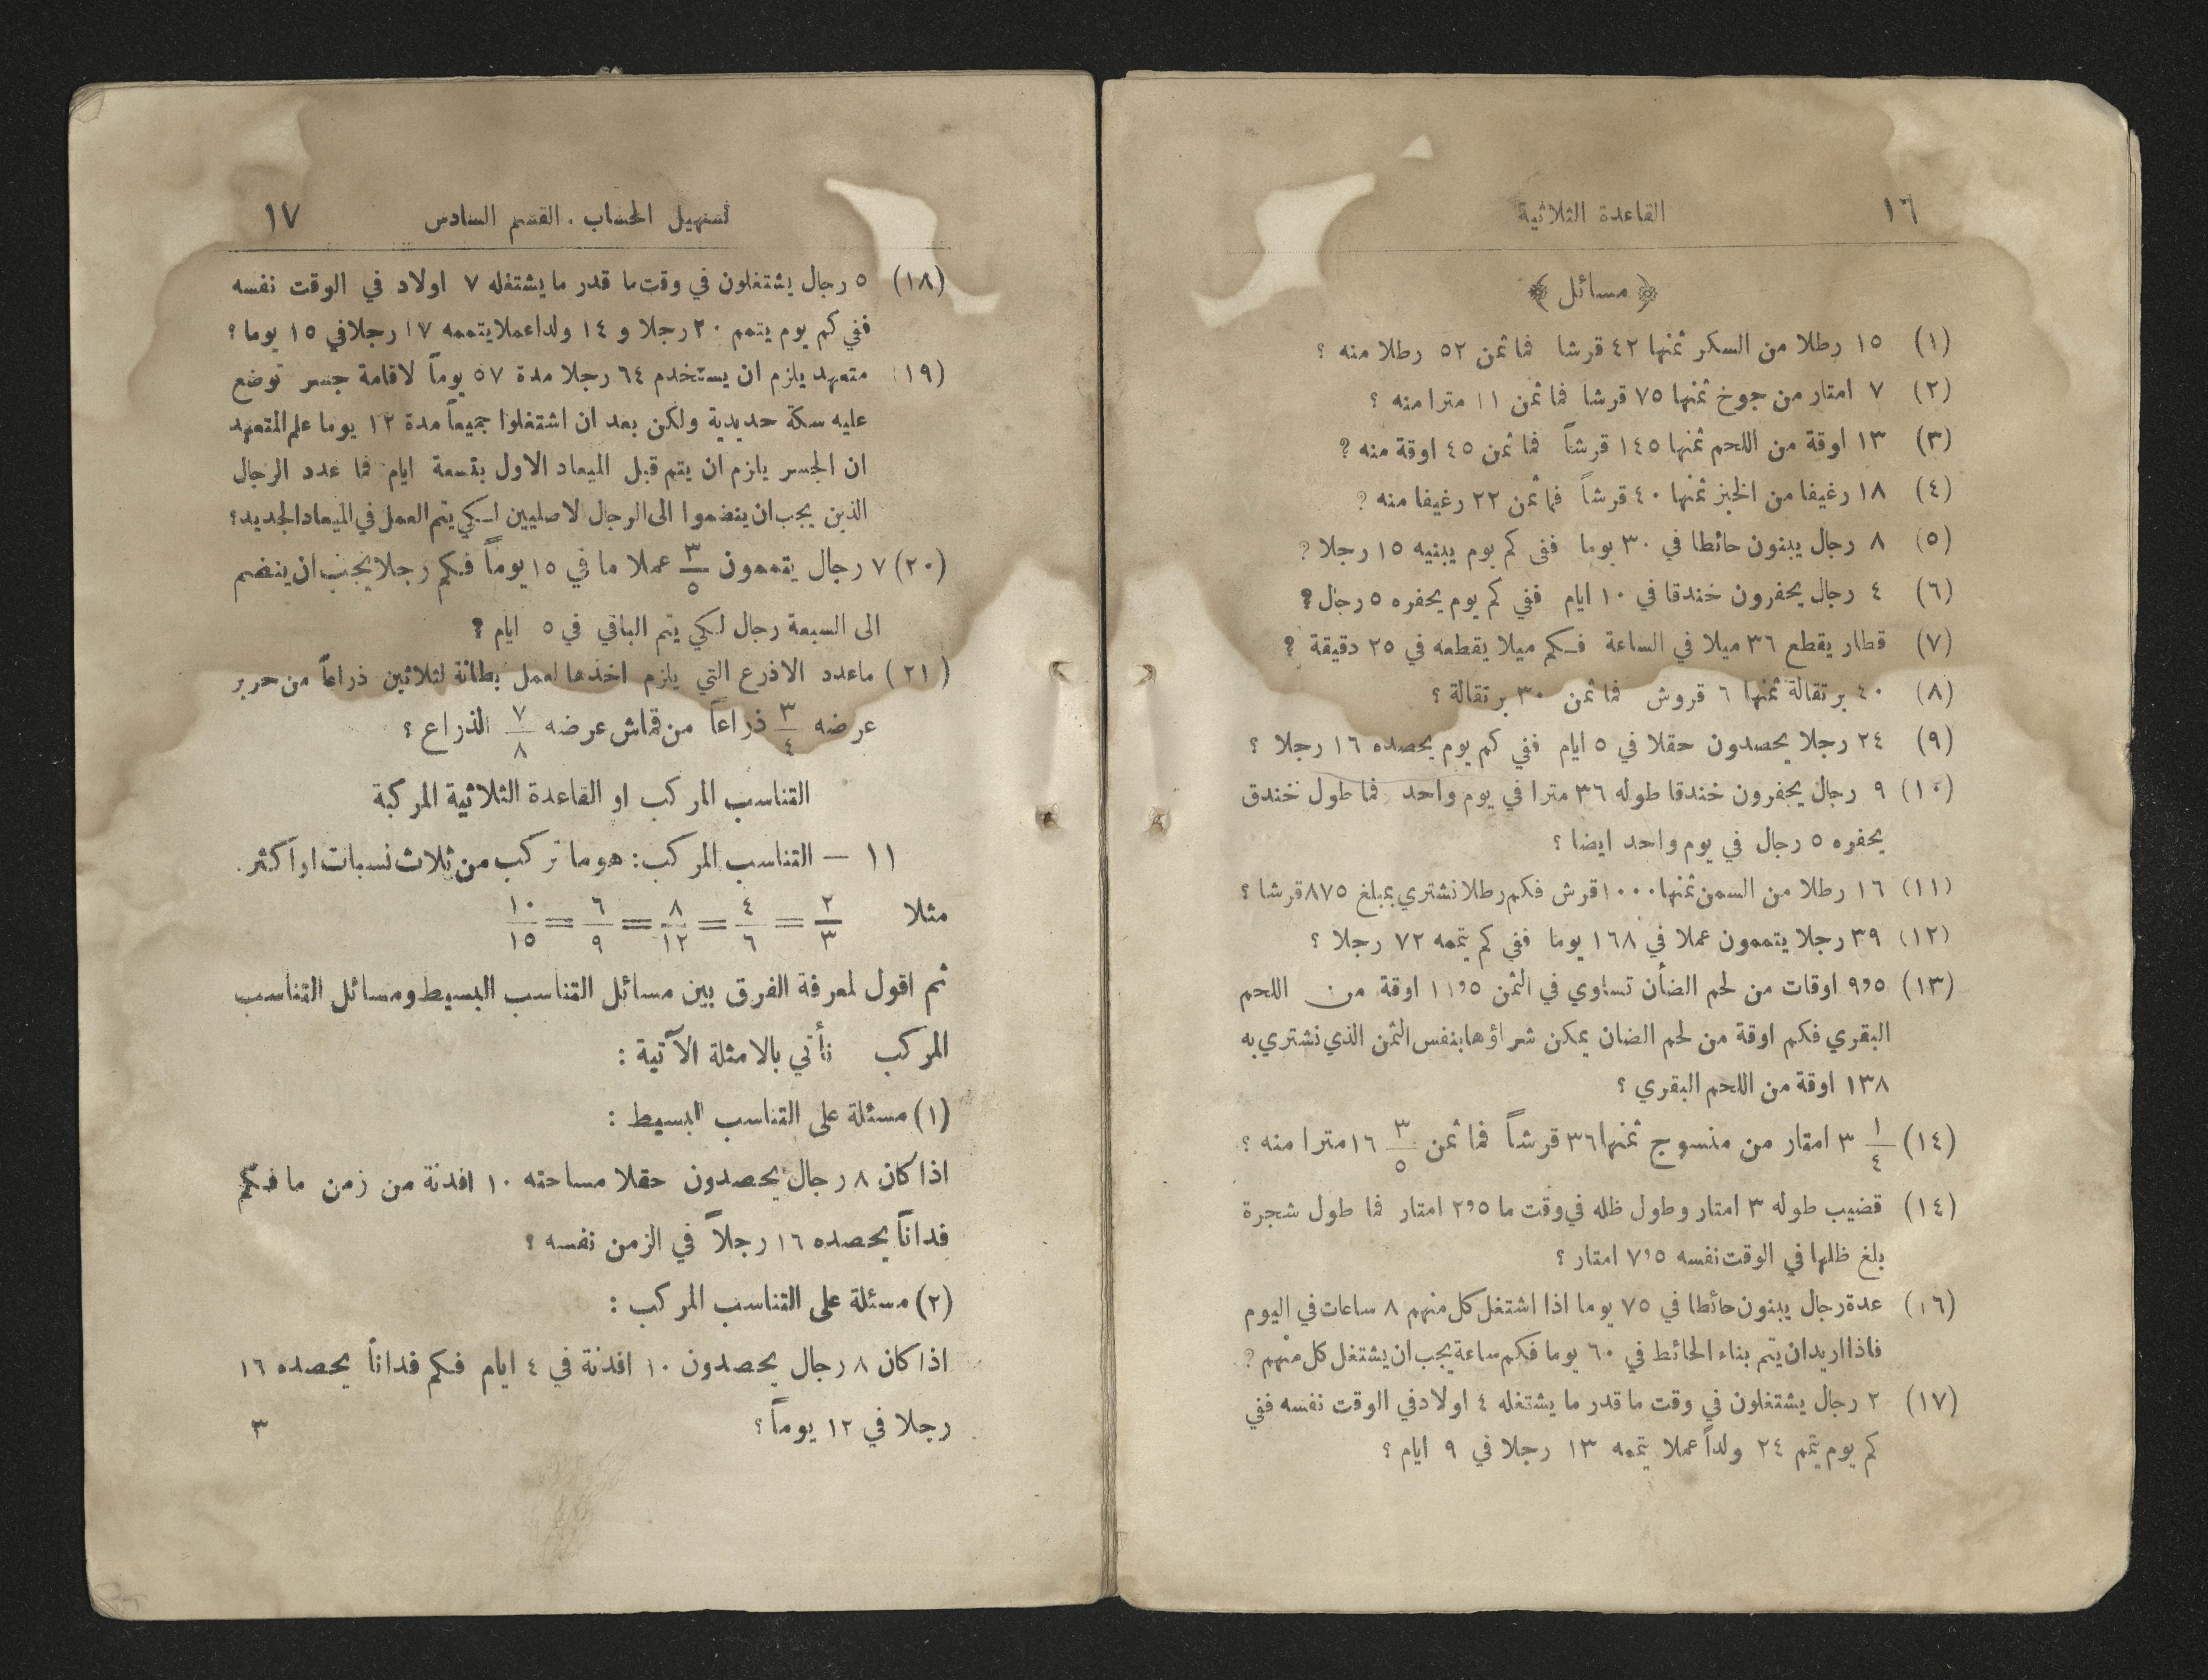 ١٦ القاعدة الثلاثية
﴿ مسائل ﴾
(١) ١٥ رطلا من السكر ثمنها ٤٢ قرشا فما ثمن ٥٢ رطلا منه ؟
(٢) ٧ امتار من جوخ ثمنها ٧٥ قرشا فما ثمن ١١ مترا منه ؟
(٣) ١٣ اوقة من اللحم ثمنها ١٤٥ قرشاً فما ثمن ٤٥ اوقة منه ؟
(٤) ١٨ رغيفا من الخبز ثمنها ٤٠ قرشاً فما ثمن ٢٢ رغيفا منه ؟
(٥) ٨ رجال يبنون حائطا في ٣٠ يوما ففى كم يوم يبنيه ١٥ رجلا ؟
(٦) ٤ رجال يحفرون خندقا في ١٠ ايام ففي كم يوم يحفره ٥ رجال ؟
(٧) قطار يقطع ٣٦ ميلا في الساعة فكم ميلا يقطعه في ٢٥ دقيقة ؟
(٨) ٤٠ برتقالة ثمنها ٦ قروش فما ثمن ٣٠ برتقالة ؟
(٩) ٢٤ رجلا يحصدون حقلا في ٥ ايام ففي كم يوم يحصده ١٦ رجلا ؟
(١٠) ٩ رجال يحفرون خندقا طوله ٣٦ مترا في يوم واحد فما طول خندق
يحفره ٥ رجال في يوم واحد ايضا ؟
(١١) ١٦ رطلا من السمن ثمنها ١٠٠٠ قرش فكم رطلا نشتري بمبلغ ٨٧٥ قرشا ؟
(١٢) ٣٩ رجلا يتممون عملا في ١٦٨ يوما ففي كم يتمه ٧٢ رجلا ؟
(١٣) ٩٫٥ اوقات من لحم الضأن تساوي في الثمن ١١٫٥ اوقة من اللحم
البقري فكم اوقة من لحم الضان يمكن شراؤها بنفس الثمن الذي نشتري به
١٣٨ اوقة من اللحم البقري ؟
(١٤) ١/٤ ٣ امتار من منسوج ثمنها ٣٦ قرشاً فما ثمن ٣/٥ ١٦ مترا منه ؟
(١٤) قضيب طوله ٣ امتار وطول ظله في وقت ما ٢٫٥ امتار فما طول شجرة
بلغ ظلها في الوقت نفسه ٧٫٥ امتار ؟
(١٦) عدة رجال يبنون حائطا في ٧٥ يوما اذا اشتغل كل منهم ٨ ساعات في اليوم
فاذا اريد ان يتم بناء الحائط في ٦٠ يوما فكم ساعة يجب ان يشتغل كل منهم ؟
(١٧) ٢ رجال يشتغلون في وقت ما قدر ما يشتغله ٤ اولاد في الوقت نفسه ففي
كم يوم يتمم ٢٤ ولداً عملا يتمه ١٣ رجلا في ٩ ايام ؟
تسهيل الحساب . القسم السادس ١٧
(١٨) ٥ رجال يشتغلون في وقت ما قدر ما يشتغله ٧ اولاد في الوقت نفسه
ففي كم يوم يتمم ٢٠ رجلا و ١٤ ولدا عملا يتممه ١٧ رجلا في ١٥ يوما ؟
(١٩) متعهد يلزم ان يستخدم ٦٤ رجلا مدة ٥٧ يوماً لاقامة جسر توضع
عليه سكة حديدية ولكن بعد ان اشتغلوا جميعاً مدة ١٢ يوما علم المتعهد
ان الجسر يلزم ان يتم قبل الميعاد الاول بتسعة ايام فما عدد الرجال
الذين يجب ان ينضموا الى الرجال لاصليين لكي يتم العمل في الميعاد الجديد ؟
(٢٠) ٧ رجال يتممون ٣/٥ عملا ما في ١٥ يوماً فكم رجلا يجب ان ينضم
الى السبعة رجال لكي يتم الباقي في ٥ ايام ؟
(٢١) ماعدد الاذرع التي يلزم اخذها لعمل بطانة لثلاثين ذراعاً من حرير
عرضه ٣/٤ ذراعاً من قماش عرضه ٧/٨ الذراع ؟
التناسب المركب او القاعدة الثلاثية المركبة
١١ — التناسب المركب : هو ما تركب من ثلاث نسبات او اكثر .
مثلا ٢/٣ = ٤/٦ = ٨/١٢ = ٦/٩ = ١٠/١٥
ثم اقول لمعرفة الفرق بين مسائل التناسب البسيط ومسائل التناسب
المركب نأتي بالامثلة الآتية :
(١) مسئلة على التناسب البسيط :
اذا كان ٨ رجال يحصدون حقلا مساحته ١٠ افدنة من زمن ما فكم
فداناً يحصده ١٦ رجلاً في الزمن نفسه ؟
(٢) مسئلة على التناسب المركب :
اذا كان ٨ رجال يحصدون ١٠ افدنة في ٤ ايام فكم فداناً يحصده ١٦
رجلا في ١٢ يوماً ؟ ٣